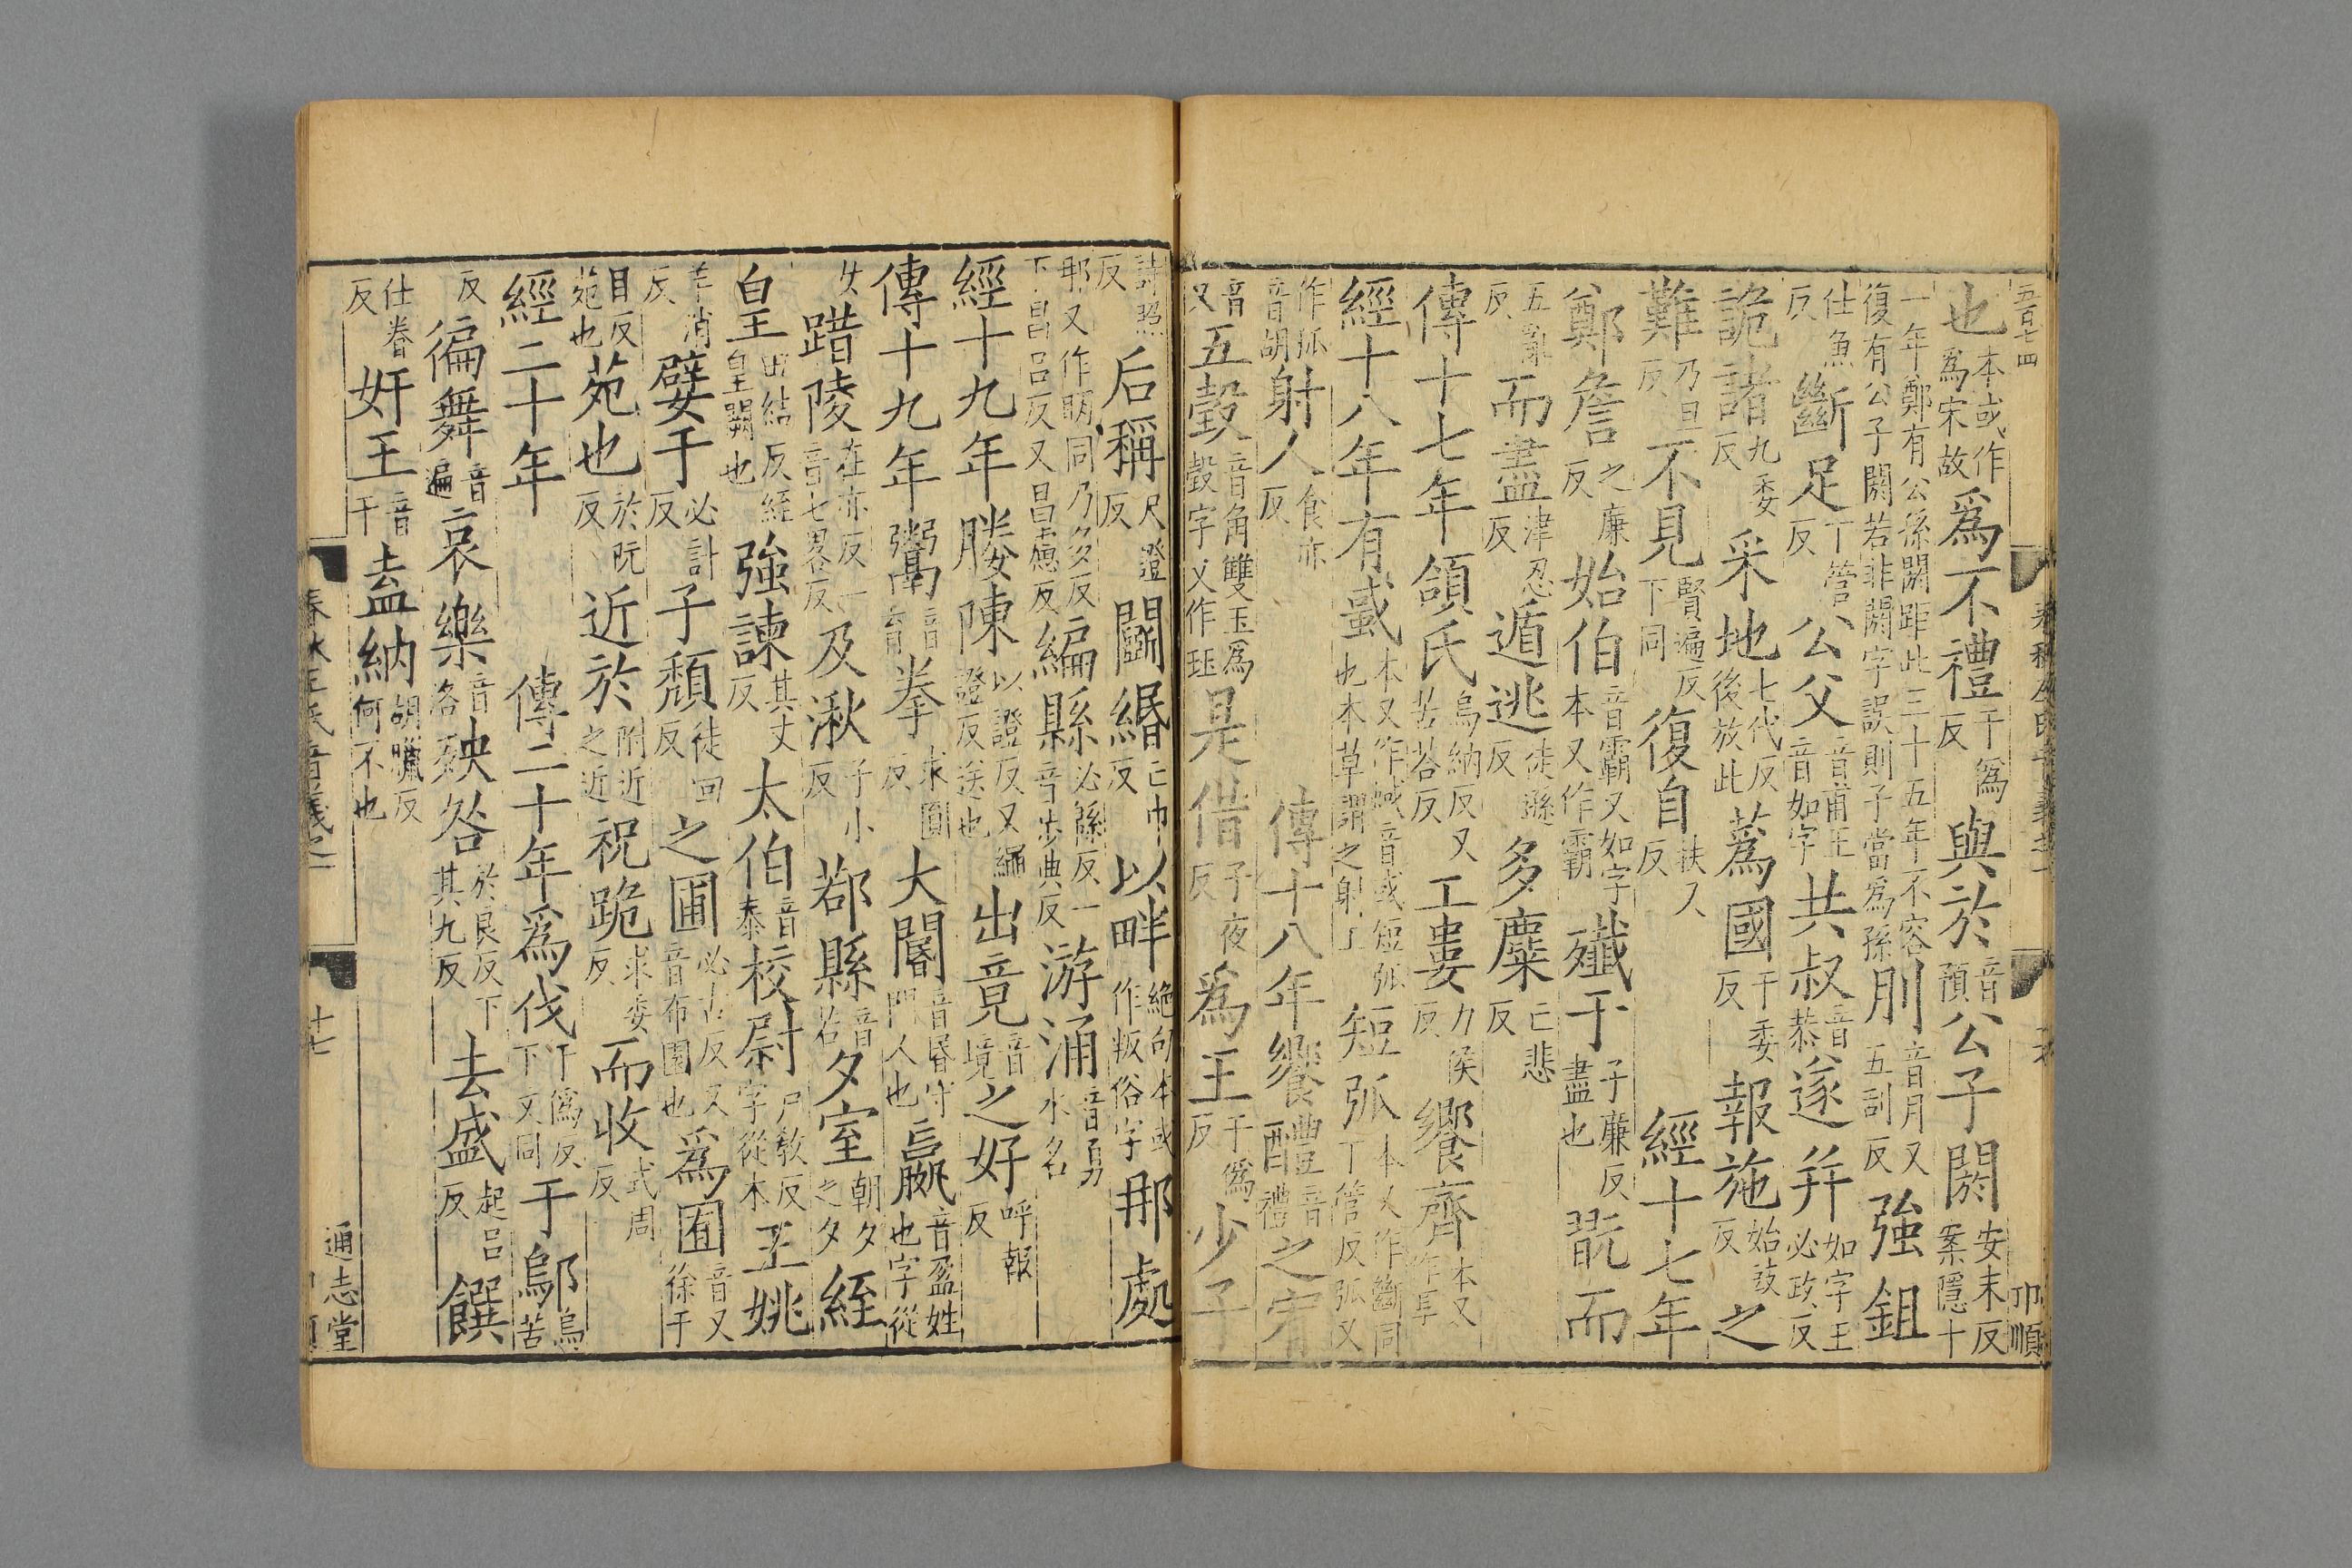 五百七四
也本或作爲宋故爲不禮于爲反與於音預公子閼安末反案隱十
一年鄭有公孫閼距此三十五年不容復有公子閼若非閼字誤則子當爲孫刖音月又五刮反強鉏
仕魚反斷足丁管反公父音甫王音如字共叔音恭遂并如字王必政反
詭諸九委反采地七代反後放此蔿國于委反報施始豉反之
難乃旦反不見賢遍反下同復自扶又反 經十七年
鄭詹之廉反始伯音霸又如字本又作霸殲于子廉反盡也翫而
五亂反而盡津忍反遁逃徒遜反多麋亡悲反
傳十七年頜氏烏納反又苦荅反工婁力侯反饗齊本又作享
經十八年有蜮本又作蜮音或短弧也本草謂之射工短弧本又作斷同丁管反弧又
作狐音胡射人食亦反 傳十八年饗醴音禮之宥
音又五瑴音角雙玉爲瑴字又作珏是借子夜反爲王于爲反少子
詩照反后稱尺證反鬭緡亡巾反以畔絶句本或作叛俗字那處
那又作䏧同乃多反下昌呂反又昌慮反編縣必緜反一音步典反游涌音勇水名
經十九年媵陳以證反又繩證反送也出竟音境之好呼報反
傳十九年鬻音育拳求圓反大閽音昬守門人也嬴音盈姓也字從
女踖陵在亦反一音七畧反及湫子小反鄀縣音若夕室朝夕之夕絰
皇田結反絰皇闕也強諫其丈反太伯音泰校尉戸教反字從木王姚
羊消反嬖于必計反子頽徒回反之圃必古反又音布園也爲囿音又徐于
目反苑也苑也於阮反近於附近之近祝跪求委反而收式周反
經二十年 傳二十年爲伐于僞反下文同于鄔烏苦
反徧舞音遍哀樂音洛殃咎於良反下其九反去盛起呂反饌
仕眷反奸王音干盍納胡臘反何不也
春秋左氏音義之一
十七
通志堂